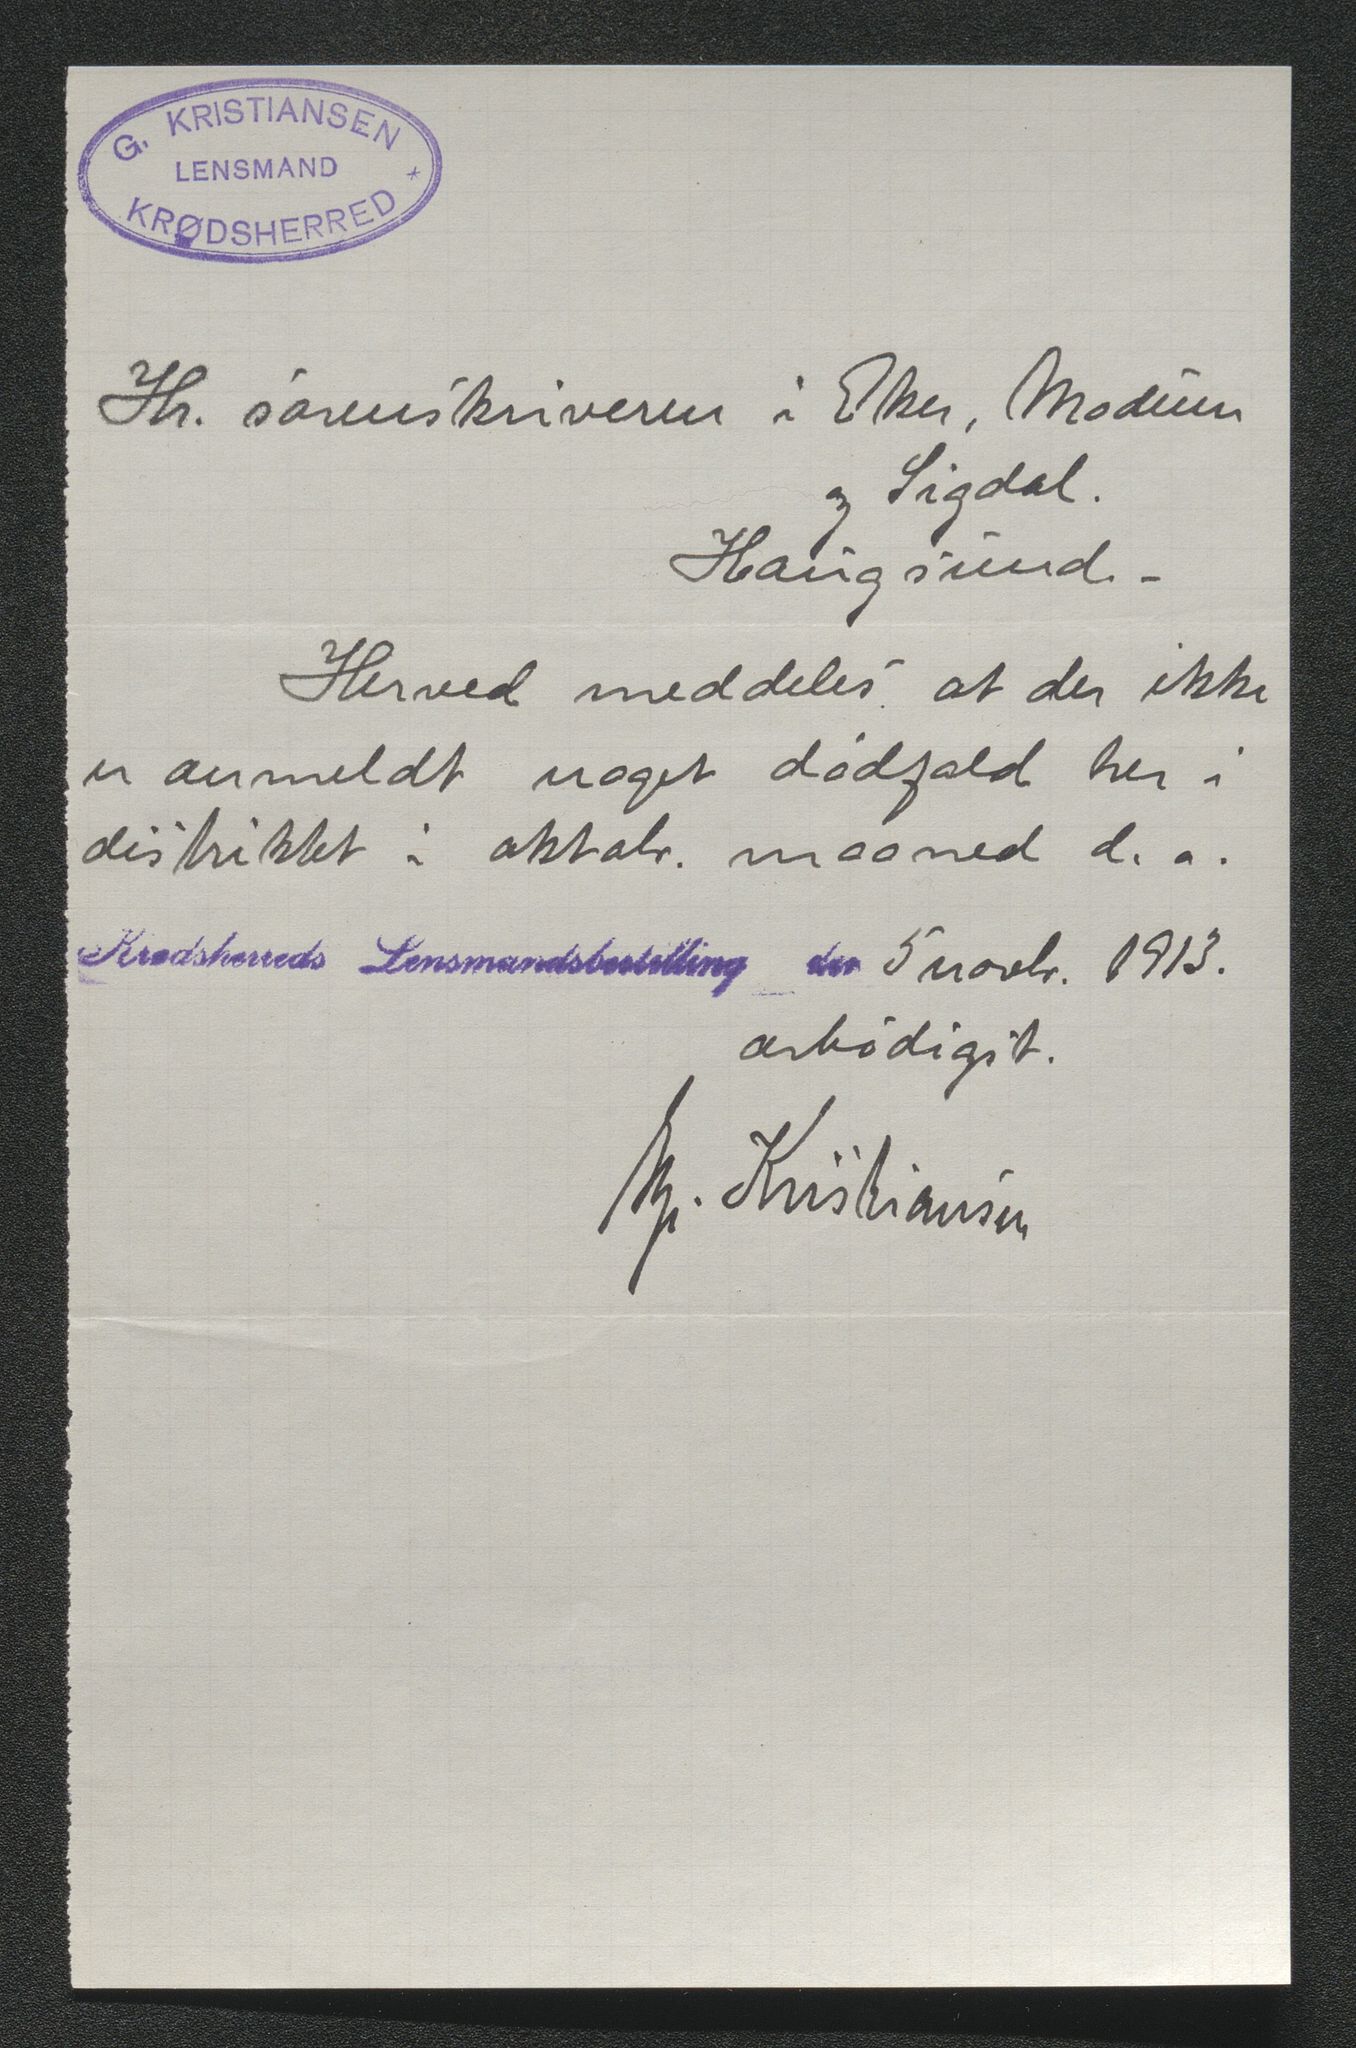 G. KRISTIANSEN
LENSMAND
KRØDSHERRED
Hr. sorenskriveren i Eker, Modum
og Sigdal.
Haugsund. -
Herved meddeles at der ikke
er anmeldt noget dødsfald her i
distriktet i oktobr. maaned d. a.
Krødsherreds Lensmandsbestilling den 5 novbr. 1913.
ærbødigst.
Kristiansen